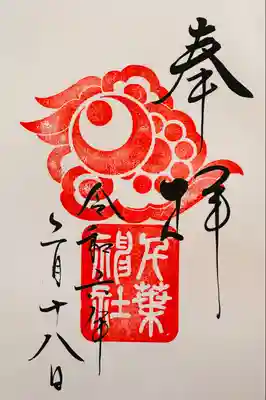 奉拝
千葉
神社
令和六年
月十八日